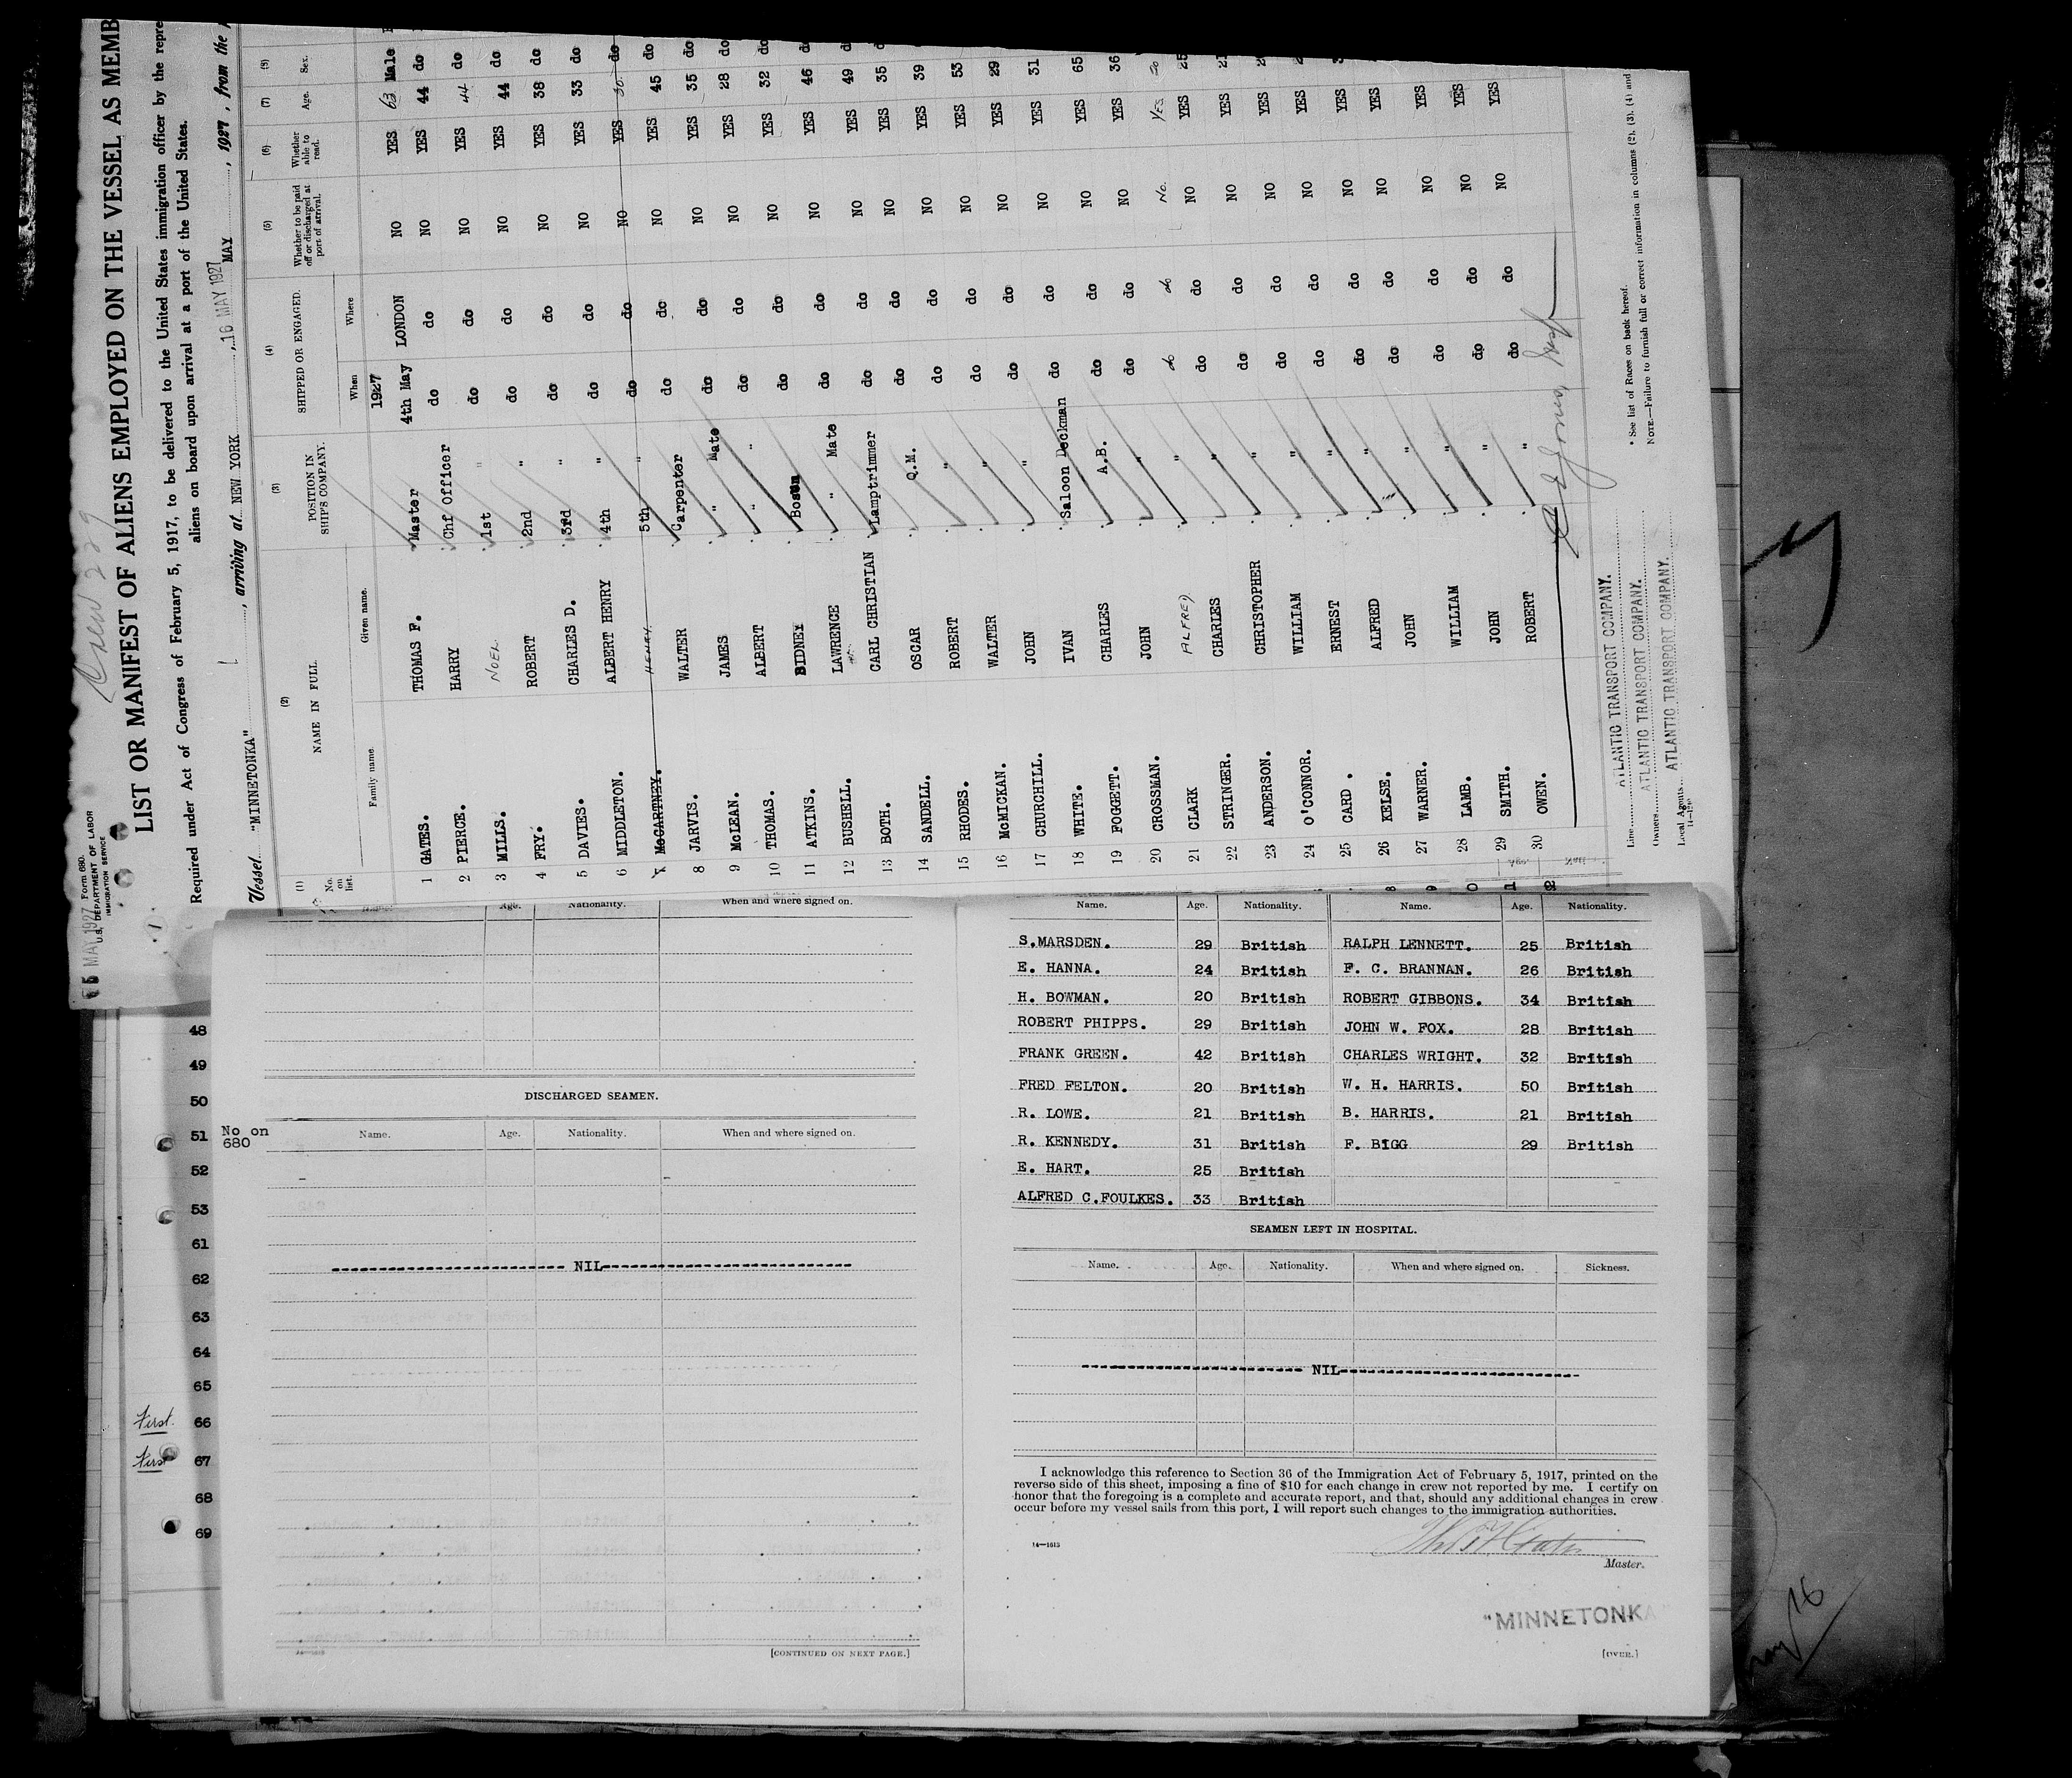 Crew 229
16 MAY 1927
Form 680.
U.S. DEPARTMENT OF LABOR
IMMIGRATION SERVICE
LIST OR MANIFEST OF ALIENS EMPLOYED ON THE VESSEL AS MEMB
Required under Act of Congress of February 5, 1917, to be delivered to the United States immigration officer by the repre
aliens on board upon arrival at a port of the United States.
Vessel "MINNETONKA", arriving at NEW YORK, 16 MAY 1927 MAY, 1927, from the
(1) (2) (3) (4) (5) (6) (7) (8)
No. on list. NAME IN FULL. POSITION IN SHIP'S COMPANY. SHIPPED OR ENGAGED. Whether to be paid off or discharged at port of arrival. Whether able to read. Age. Sex.
Family name Given name. When Where
1927
1 GATES. THOMAS F. Master 4th May LONDON NO YES 63 Male
2 PIERCE. HARRY Chf Officer do do NO YES 44 do
3 MILLS. NOEL 1st " do do NO YES 44 do
4 FRY. ROBERT 2nd " do do NO YES 44 do
5 DAVIES. CHARLES D. 3rd " do do NO YES 38 do
6 MIDDLETON. ALBERT HENRY 4th " do do NO YES 33 do
7 McCARTNEY. HENRY. 5th " do do NO YES 30 do
8 JARVIS. WALTER Carpenter do do NO YES 45 do
9 McLEAN. JAMES " Mate do do NO YES 35 do
10 THOMAS. ALBERT " " do do NO YES 28 do
11 ATKINS. SIDNEY Bosun do do NO YES 32 do
12 BUSHELL. LAWRENCE " Mate do do NO YES 46 do
13 BOTH. CARL CHRISTIAN Lamptrimmer do do NO YES 49 do
14 SANDELL. OSCAR Q.M. do do NO YES 35 do
15 RHODES. ROBERT " do do NO YES 39
16 McMICKAN. WALTER " do do NO YES 53
17 CHURCHILL. JOHN " do do NO YES 29
18 WHITE. IVAN Saloon Deckman do do NO YES 31
19 FOGGETT. CHARLES A.B. do do NO YES 65
20 CROSSMAN. JOHN " do do NO YES 36
21 CLARK ALFRED " do do No. YES
22 STRINGER. CHARLES " do do NO YES 25
23 ANDERSON. CHRISTOPHER " do do NO YES
24 O'CONNOR. WILLIAM " do do NO YES
25 CARD. ERNEST " do do NO YES
26 KELSE. ALFRED " do do NO YES
27 WARNER. JOHN " do do NO YES
28 LAMB. WILLIAM " do do NO YES
29 SMITH. JOHN " do do NO YES
30 OWEN. ROBERT " do do NO YES
Line ATLANTIC TRANSPORT COMPANY.
Owners ATLANTIC TRANSPORT COMPANY.
Local Agents ATLANTIC TRANSPORT COMPANY.
* See list of Races on back hereof.
NOTE.—Failure to furnish full or correct information in columns (2), (3), (4) and
Age. Nationality. When and where signed on.
48
49
50
51
52
53
61
62
63
64
65
First. 66
First 67
68
69
DISCHARGED SEAMEN.
No on 680
Name. Age. Nationality. When and where signed on.
NIL
[CONTINUED ON NEXT PAGE.]
Name. Age. Nationality. Name. Age. Nationality.
S.MARSDEN. 29 British RALPH LENNETT. 25 British
E. HANNA. 24 British F. C. BRANNAN. 26 British
H. BOWMAN. 20 British ROBERT GIBBONS. 34 British
ROBERT PHIPPS. 29 British JOHN W. FOX. 28 British
FRANK GREEN. 42 British CHARLES WRIGHT. 32 British
FRED FELTON. 20 British W. H. HARRIS. 50 British
R. LOWE. 21 British B. HARRIS. 21 British
R. KENNEDY. 31 British F. BIGG 29 British
E. HART. 25 British
ALFRED C.FOULKES. 33 British
SEAMEN LEFT IN HOSPITAL.
Name. Age. Nationality. When and where signed on. Sickness.
NIL
I acknowledge this reference to Section 36 of the Immigration Act of February 5, 1917, printed on the
reverse side of this sheet, imposing a fine of $10 for each change in crew not reported by me. I certify on
honor that the foregoing is a complete and accurate report, and that, should any additional changes in crew
occur before my vessel sails from this port, I will report such changes to the immigration authorities.
14—1613
Master.
"MINNETONKA"
[OVER.]